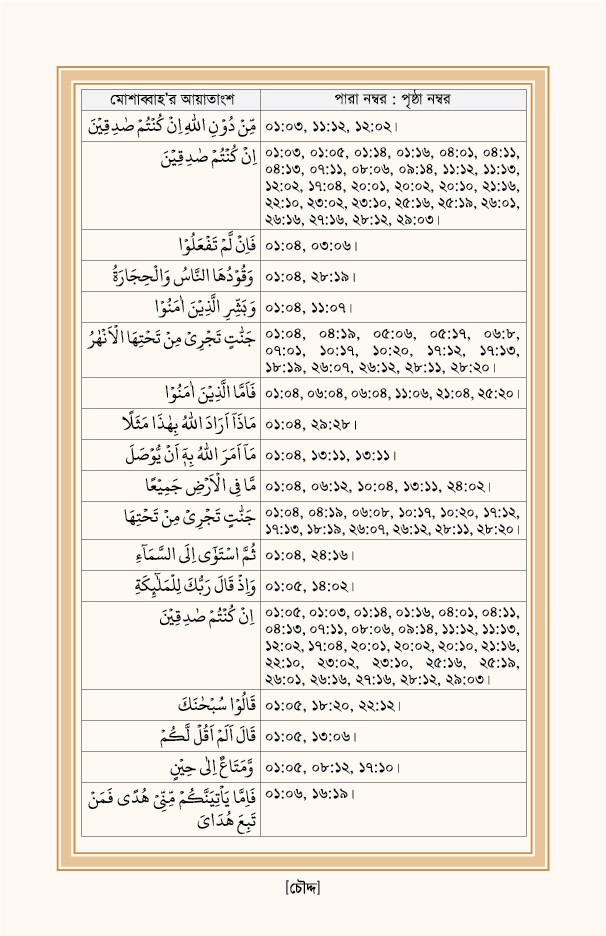 মোশাব্বাহ'র আয়াতাংশ	পারা নম্বর : পৃষ্ঠা নম্বর
مِّنْ دُوْنِ اللّٰهِ اِنْ كُنْتُمْ صٰدِقِيْنَ	০১:০৩, ১১:১২, ১২:০২।
اِنْ كُنْتُمْ صٰدِقِيْنَ	০১:০৩, ০১:০৫, ০১:১৪, ০১:১৬, ০৪:০১, ০৪:১১,
০৪:১৩, ০৭:১১, ০৮:০৬, ০৯:১৪, ১১:১২, ১১:১৩,
১২:০২, ১৭:০৪, ২০:০১, ২০:০২, ২০:১০, ২১:১৬,
২২:১০, ২৩:০২, ২৩:১০, ২৫:১৬, ২৫:১৯, ২৬:০১,
২৬:১৬, ২৭:১৬, ২৮:১২, ২৯:০৩।
فَاِنْ لَّمْ تَفْعَلُوْا	০১:০৪, ০৩:০৬।
وَقُوْدُهَا النَّاسُ وَالْحِجَارَةُ	০১:০৪, ২৮:১৯।
وَبَشِّرِ الَّذِيْنَ اٰمَنُوْا	০১:০৪, ১১:০৭।
جَنّٰتٍ تَجْرِىْ مِنْ تَحْتِهَا الْاَنْهٰرُ	০১:০৪, ০৪:১৯, ০৫:০৬, ০৫:১৭, ০৬:৮,
০৭:০১, ১০:১৭, ১০:২০, ১৭:১২, ১৭:১৩,
১৮:১৯, ২৬:০৭, ২৬:১২, ২৮:১১, ২৮:২০।
فَاَمَّا الَّذِيْنَ اٰمَنُوْا	০১:০৪, ০৬:০৪, ০৬:০৪, ১১:০৬, ২১:০৪, ২৫:২০।
مَاذَآ اَرَادَ اللّٰهُ بِهٰذَا مَثَلًا	০১:০৪, ২৯:২৮।
مَآ اَمَرَ اللّٰهُ بِهٖٓ اَنْ يُّوْصَلَ	০১:০৪, ১৩:১১, ১৩:১১।
مَّا فِى الْاَرْضِ جَمِيْعًا	০১:০৪, ০৬:১২, ১০:০৪, ১৩:১১, ২৪:০২।
جَنّٰتٍ تَجْرِىْ مِنْ تَحْتِهَا	০১:০৪, ০৪:১৯, ০৬:০৮, ১০:১৭, ১০:২০, ১৭:১২,
১৭:১৩, ১৮:১৯, ২৬:০৭, ২৬:১২, ২৮:১১, ২৮:২০।
ثُمَّ اسْتَوٰٓى اِلَى السَّمَآءِ	০১:০৪, ২৪:১৬।
وَاِذْ قَالَ رَبُّكَ لِلْمَلٰٓئِكَةِ	০১:০৫, ১৪:০২।
اِنْ كُنْتُمْ صٰدِقِيْنَ	০১:০৫, ০১:০৩, ০১:১৪, ০১:১৬, ০৪:০১, ০৪:১১,
০৪:১৩, ০৭:১১, ০৮:০৬, ০৯:১৪, ১১:১২, ১১:১৩,
১২:০২, ১৭:০৪, ২০:০১, ২০:০২, ২০:১০, ২১:১৬,
২২:১০, ২৩:০২, ২৩:১০, ২৫:১৬, ২৫:১৯,
২৬:০১, ২৬:১৬, ২৭:১৬, ২৮:১২, ২৯:০৩।
قَالُوْا سُبْحٰنَكَ	০১:০৫, ১৮:২০, ২২:১২।
قَالَ اَلَمْ اَقُلْ لَّكُمْ	০১:০৫, ১৩:০৬।
وَّمَتَاعٌ اِلٰى حِيْنٍ	০১:০৫, ০৮:১২, ১৭:১০।
فَاِمَّا يَاْتِيَنَّكُمْ مِّنِّىْ هُدًى فَمَنْ	০১:০৬, ১৬:১৯।
تَبِعَ هُدَاىَ
[চৌদ্দ]